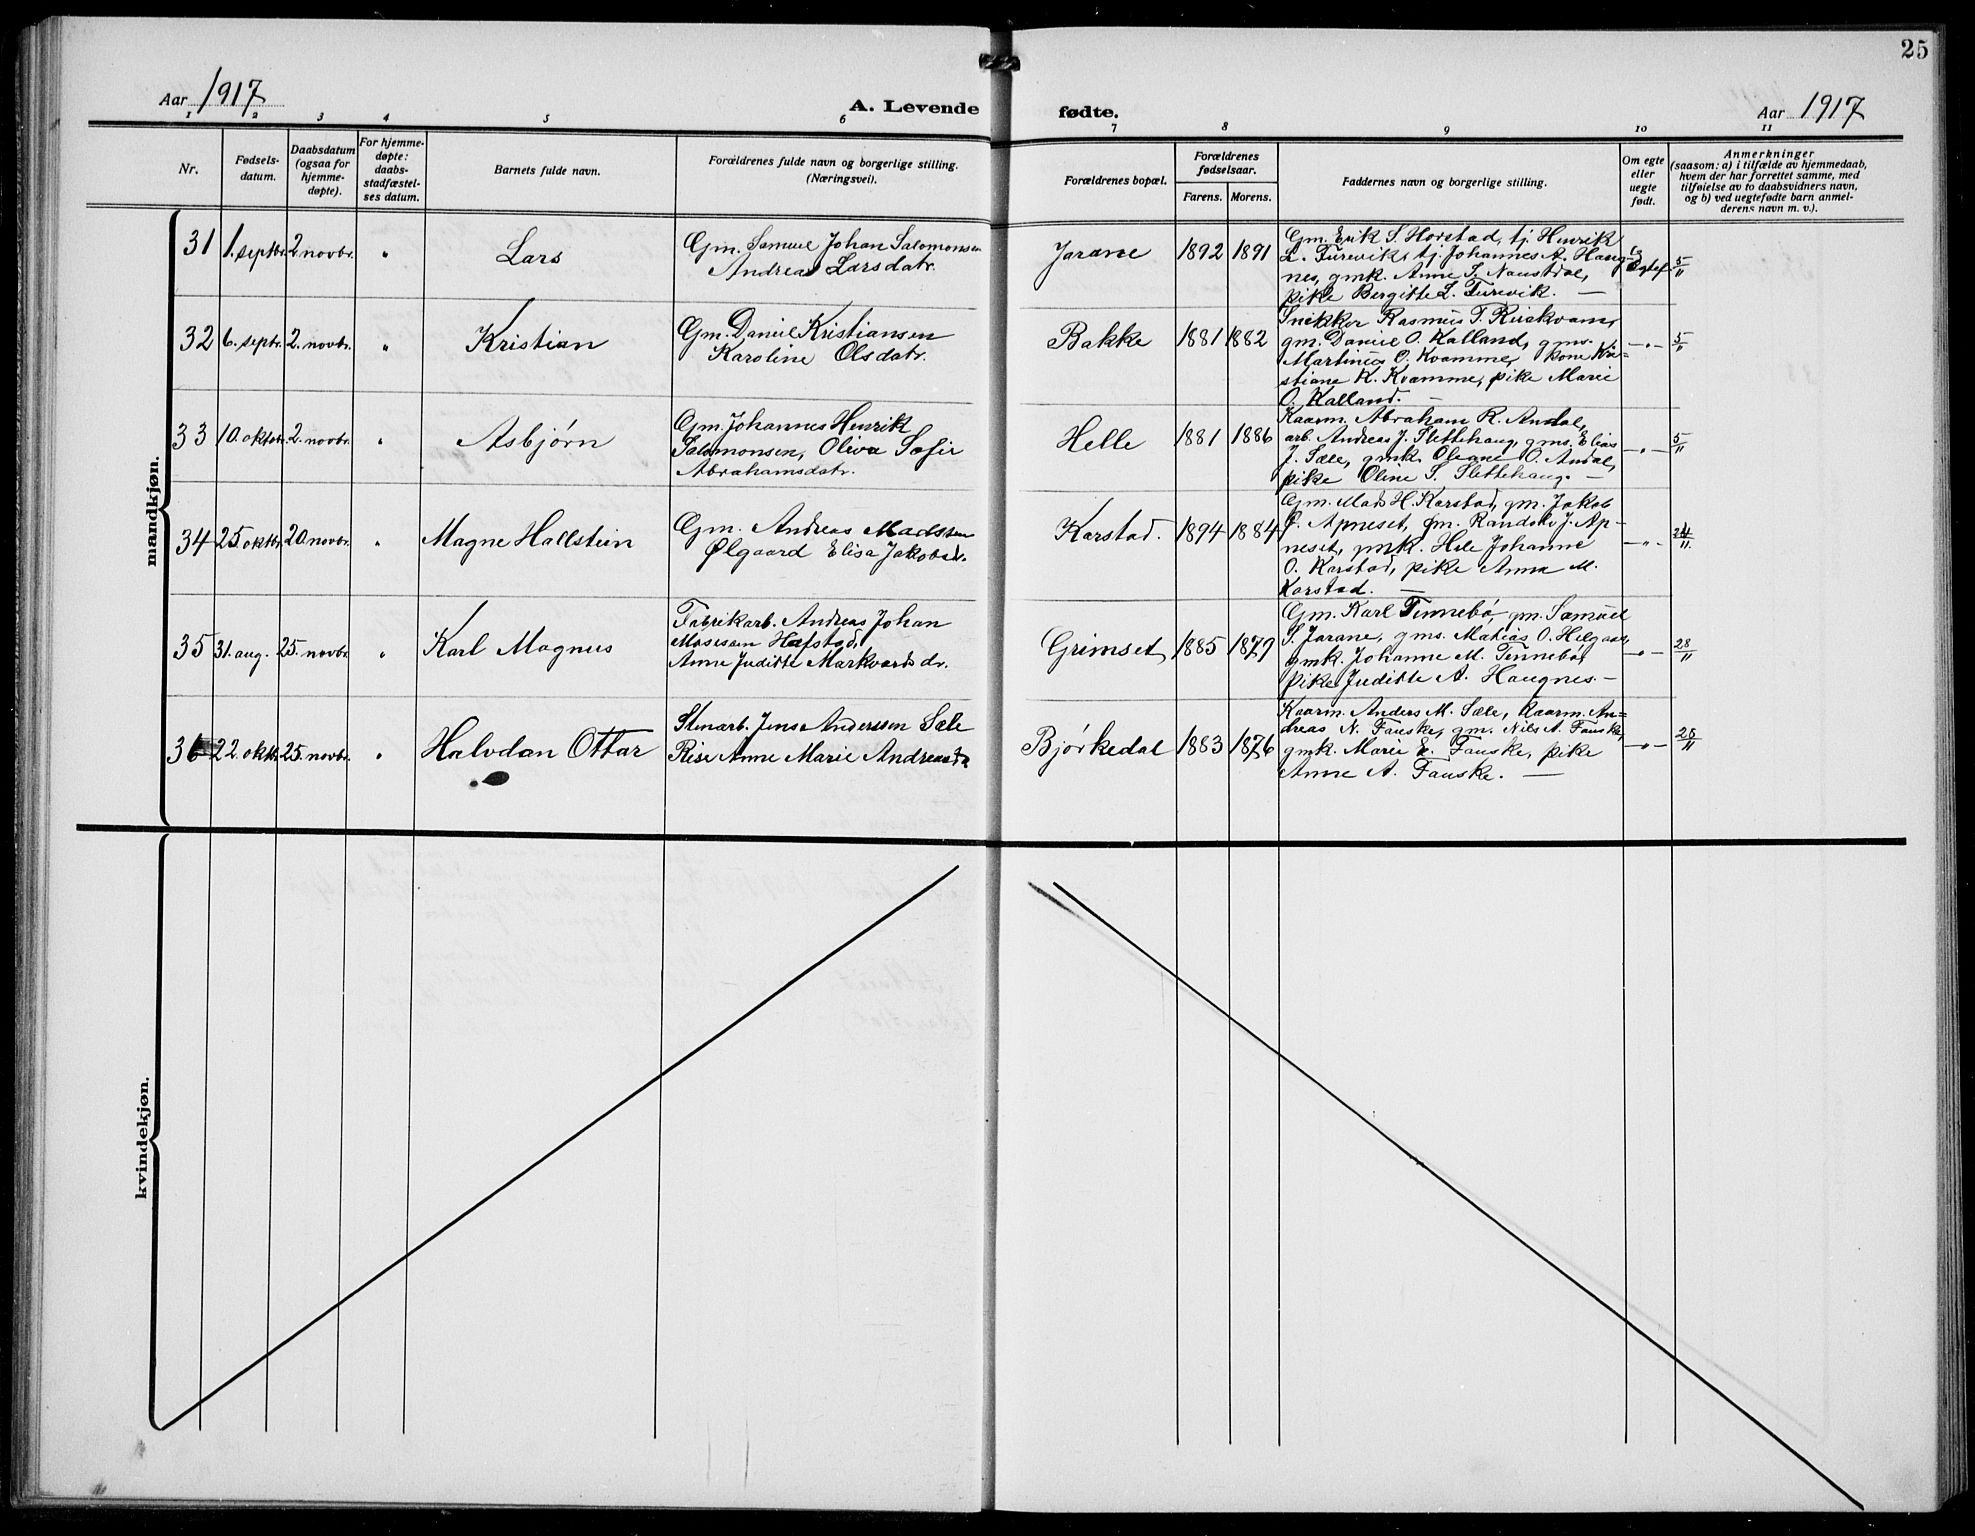 25
Aar 1917
A. Levende
fødte.
Aar 1917
1 2 3 4 5 6 7 8 9 10 11
Nr.
Fødsels-
datum.
Daabsdatum
(ogsaa for
hjemme-
døpte).
For hjemme-
døpte:
daabs-
stadfæstel-
ses datum.
Barnets fulde navn.
Forældrenes fulde navn og borgerlige stilling.
(Næringsvei).
Forældrenes bopæl.
Forældrenes
fødselsaar.
Farens. Morens.
Faddernes navn og borgerlige stilling.
Om egte
eller
uegte
født.
Anmerkninger
(saasom: a) i tilfælde av hjemmedaab,
hvem der har forrettet samme, med
tilføielse av to daabsvidners navn,
og b) ved uegtefødte barn anmel-
derens navn m. v.).
mandkjøn.
31 1. septbr. 2. novbr. " Lars
Gm. Samuel Johan Salomonsen
Andrea Larsdatr.
Jarane 1892 1891
Gm. Erik S. Horstad, tj. Henrik
L. Turevik, tj. Johannes A. Haug-
nes, gmk. Anne S. Naustdal,
pike Bergitte L. Turevik. —
Egtef. 5/11
32 6. septr. 2. novbr. " Kristian
Gm. Daniel Kristiansen
Karoline Olsdatr.
Bakke 1881 1882
Snekker Rasmus T. Ruskvam,
gm. Daniel O. Kalland, gms.
Martinus O. Kvamme, kone Kri=
stiane K. Kvamme, pike Marie
O. Kalland. —
— " — 5/11
33 10. oktbr. 2. novbr. " Asbjørn
Gm. Johannes Henrik
Salomonsen, Oliva Sofie
Abrahamsdatr.
Helle 1881 1886
Kaarm. Abraham R. Andal,
arb. Andreas J. Slettehaug, gms. Elias
J. Sæle, gmk. Oleane O. Andal,
pike Oline S. Slettehaug. —
— " — 5/11
34 25. oktbr. 20. novbr. " Magne Hallstein
Gm. Andreas Madssen
Ølgaard Elisa Jakobsdr.
Karstad. 1894 1884
Gm. Mads H. Karstad, gm. Jakob
Apneset, gm. Randolv J. Ap-
neset, gmk. Hele Johanne
O. Karstad, pike Anna M.
Karstad. —
— " — 24/11
35 31. aug. 25. novbr. " Karl Magnus
Fabrikarb. Andreas Johan
Mosesen Hafstad,
Anne Juditte Markvards dr.
Grimset, 1885 1879
Gm. Karl Tennebø, gm. Samuel
S. Jarane, gms. Matias O. Helgaas,
gmk. Johanne M. Tennebø,
pike Juditte A. Haugnes. —
— " — 28/11
36 22. oktbr. 25. novbr. " Halvdan Ottar
Stenarb. Jens Anderssen Sæle
Rise Anne Marie Andreasdr
Bjørkedal 1883 1876
Kaarm. Anders M. Sæle, Kaarm. An=
dreas N. Fauske, gm. Nils A. Fauske,
gmk. Marie E. Fauske, pike
Anne A. Fauske. —
— " — 28/11
kvindekjøn.